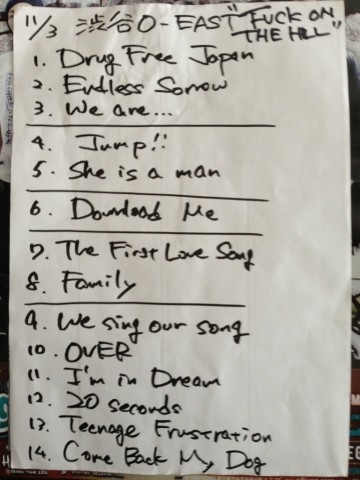 11/3 渋谷O-EAST "FUCK ON
THE HILL"
1. Drug Free Japan
2. Endless Sorrow
3. We are...
4. Jump!!
5. She is a man
6. Download Me
7. The First Love Song
8. Family
9. We sing our song
10. OVER
11. I'm in Dream
12. 20 seconds
13. Teenage Frustration
14. Come Back My Dog